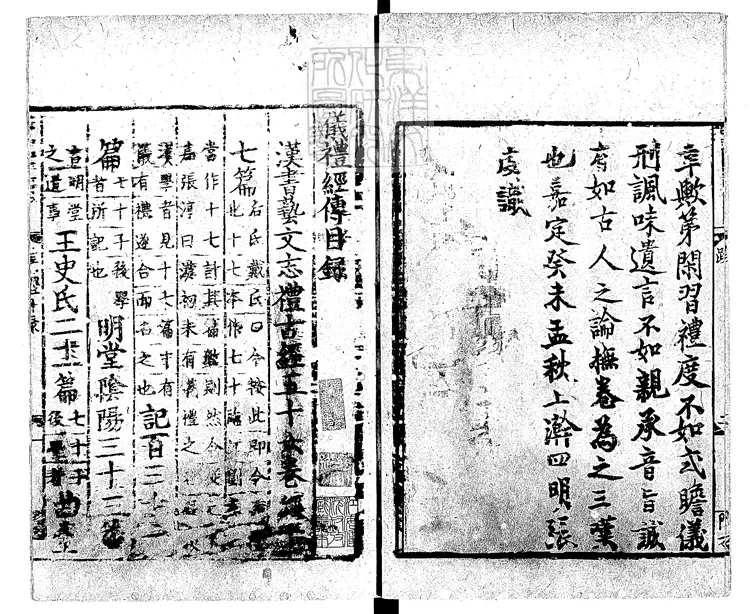 幸歟第閑習禮度不如式瞻儀
刑諷味遺言不如親承音旨誠
有如古人之論撫卷為之三嘆
也嘉定癸未孟秋上澣四明張
虙識
儀禮經傳目録
漢書藝文志禮古經五十六卷經
七篇后氏戴氏曰今按此即今
也十七本作七十
當作十七計其篇數則然今
嘉張淳曰漢初未有儀禮之
漢學者見十七篇中有
儀有禮遂合而名之也記百三十
篇七十子後學
者所記也明堂陰陽三十三篇
古明堂
之遺事王史氏二十一篇七十子
後學者曲